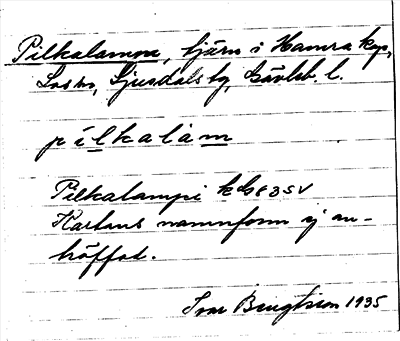 Pilkalamon, tjärn i Hamra kap,
Los sn, Ljusdals tg, Gävleb. l.
pilkalam
Pilkalampi kbl 835V
Kartans namnform ej an-
träffat.
Ivar Bengtsson 1935